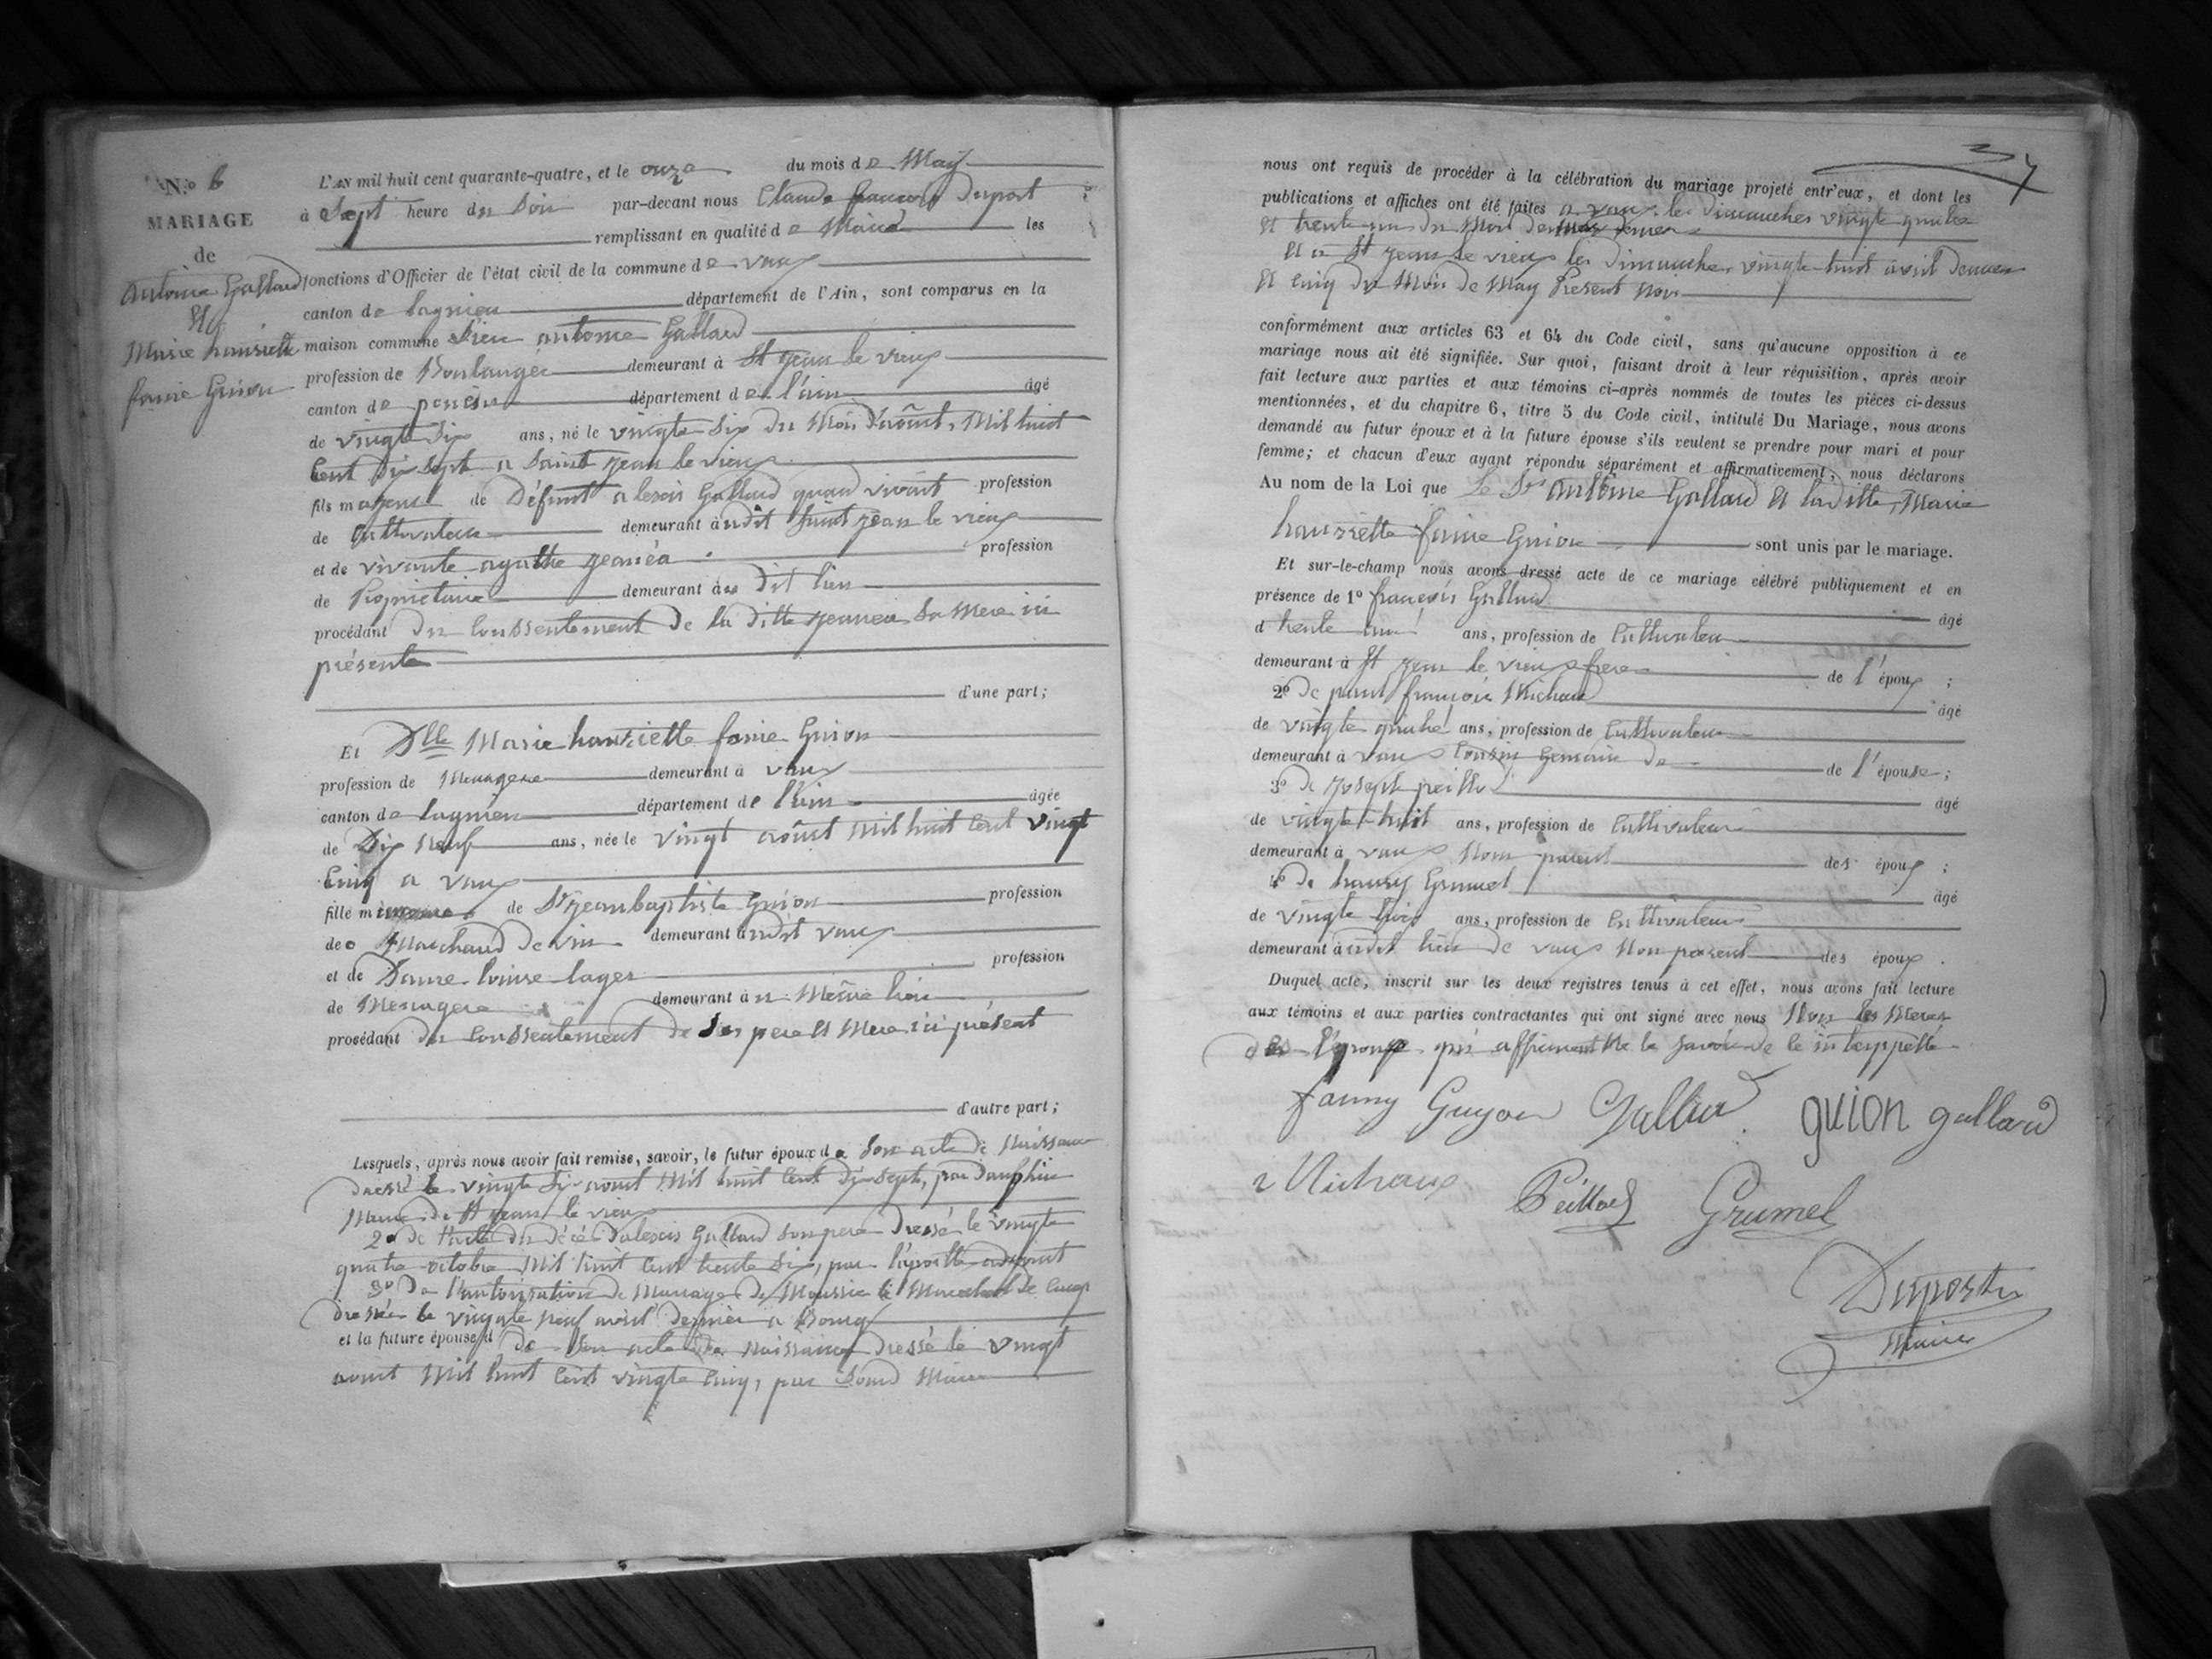 N.o 6
MARIAGE
de
Antoine Gallard
Et
Marie hanriette
fanie Guion
L'AN mil huit cent quarante-quatre, et le onze du mois de May
à Sept heure du Soir par-devant nous Claude françois Duport
remplissant en qualité de Maire les
fonctions d'Officier de l'état civil de la commune de vaux
canton de lagnieu département de l'Ain, sont comparus en la
maison commune Sieur antoine Gallard
profession de Boulanger demeurant à St jean le vieux
canton de poncin département de l'ain âgé
de vingte Six ans, né le vingte Six du Mois d'août, Mil huit
Cent Dix Sept a Saint jean le vieux
fils majeur de Défunt alexis Gallard quand vivait profession
de Cultivateur demeurant audit Saint jean le vieux
et de vivante agathe profession
de Propriétaire demeurant au dit lieu
procédant du Conssentement de la ditte Sa Mere ici
présente
d'une part;
Et Dlle Marie hanriette fanie Guion
profession de Menagere demeurant à vaux
canton de lagnieu département de l'ain âgée
de Dix Neuf ans, née le vingt août Mil huit Cent vingt
Cinq a vaux
fille mineure de Sr jean baptiste Guion profession
de Marchand de vin demeurant audit vaux
et de Dame louise lager profession
de Menagere demeurant au Même lieu
procédant du Conssentement de Ses pere et Mere ici présent
d'autre part;
Lesquels, après nous avoir fait remise, savoir, le futur époux de Son acte de Naissance
dressé le vingte Six aout Mil huit Cent Dix Sept, par Dauphin
Maire de St jean le vieux
2o de l'acte du décé D'alexis Gallard Son pere Dressé le vingte
quatre octobre Mil huit Cent trente Six, par adjoint
3o De l'autorisation de Mariage de Monssieur le Marechal De Camp
dressée le vingte Neuf avril Dernier a Bourg
et la future épouse de Son acte de Naissance Dressé le vingt
aout Mil huit Cent vingte Cinq, par Maire
nous ont requis de procéder à la célébration du mariage projeté entr'eux, et dont les
publications et affiches ont été faites a vaux les Dimanches vingte
Et trente un du Mois
Et a St jean le vieux les Dimanches vingte huit avril Dernier
Et Cinq du Mois de May Présent Mois
conformément aux articles 63 et 64 du Code civil, sans qu'aucune opposition à ce
mariage nous ait été signifiée. Sur quoi, faisant droit à leur réquisition, après avoir
fait lecture aux parties et aux témoins ci-après nommés de toutes les pièces ci-dessus
mentionnées, et du chapitre 6, titre 5 du Code civil, intitulé Du Mariage, nous avons
demandé au futur époux et à la future épouse s'ils veulent se prendre pour mari et pour
femme; et chacun d'eux ayant répondu séparément et affirmativement, nous déclarons
Au nom de la Loi que Le Sr Antoine Gallard Et laditte, Marie
hanriette fanie Guion sont unis par le mariage.
Et sur-le-champ nous avons dressé acte de ce mariage célébré publiquement et en
présence de 1o françois Gallard âgé
d trente ans, profession de Cultivateur
demeurant à St jean le vieux frere de l'époux;
2o De françois Michaud âgé
de vingte ans, profession de Cultivateur
demeurant à vaux Cousin Germain de de l'épouse;
3o De joseph peillod âgé
de vingte huit ans, profession de Cultivateur
demeurant à vaux Non parent des époux;
4o De hanry Grumel âgé
de vingte trois ans, profession de Cultivateur
demeurant audit lieu de vaux Non parent des époux.
Duquel acte, inscrit sur les deux registres tenus à cet effet, nous avons fait lecture
aux témoins et aux parties contractantes qui ont signé avec nous Non les Meres
des Epoux qui affirment Ne le Savoir de ce interppellé
fanny Guyon Gallard guion gallard
Michaux Peillod Grumel
Duport
Maire